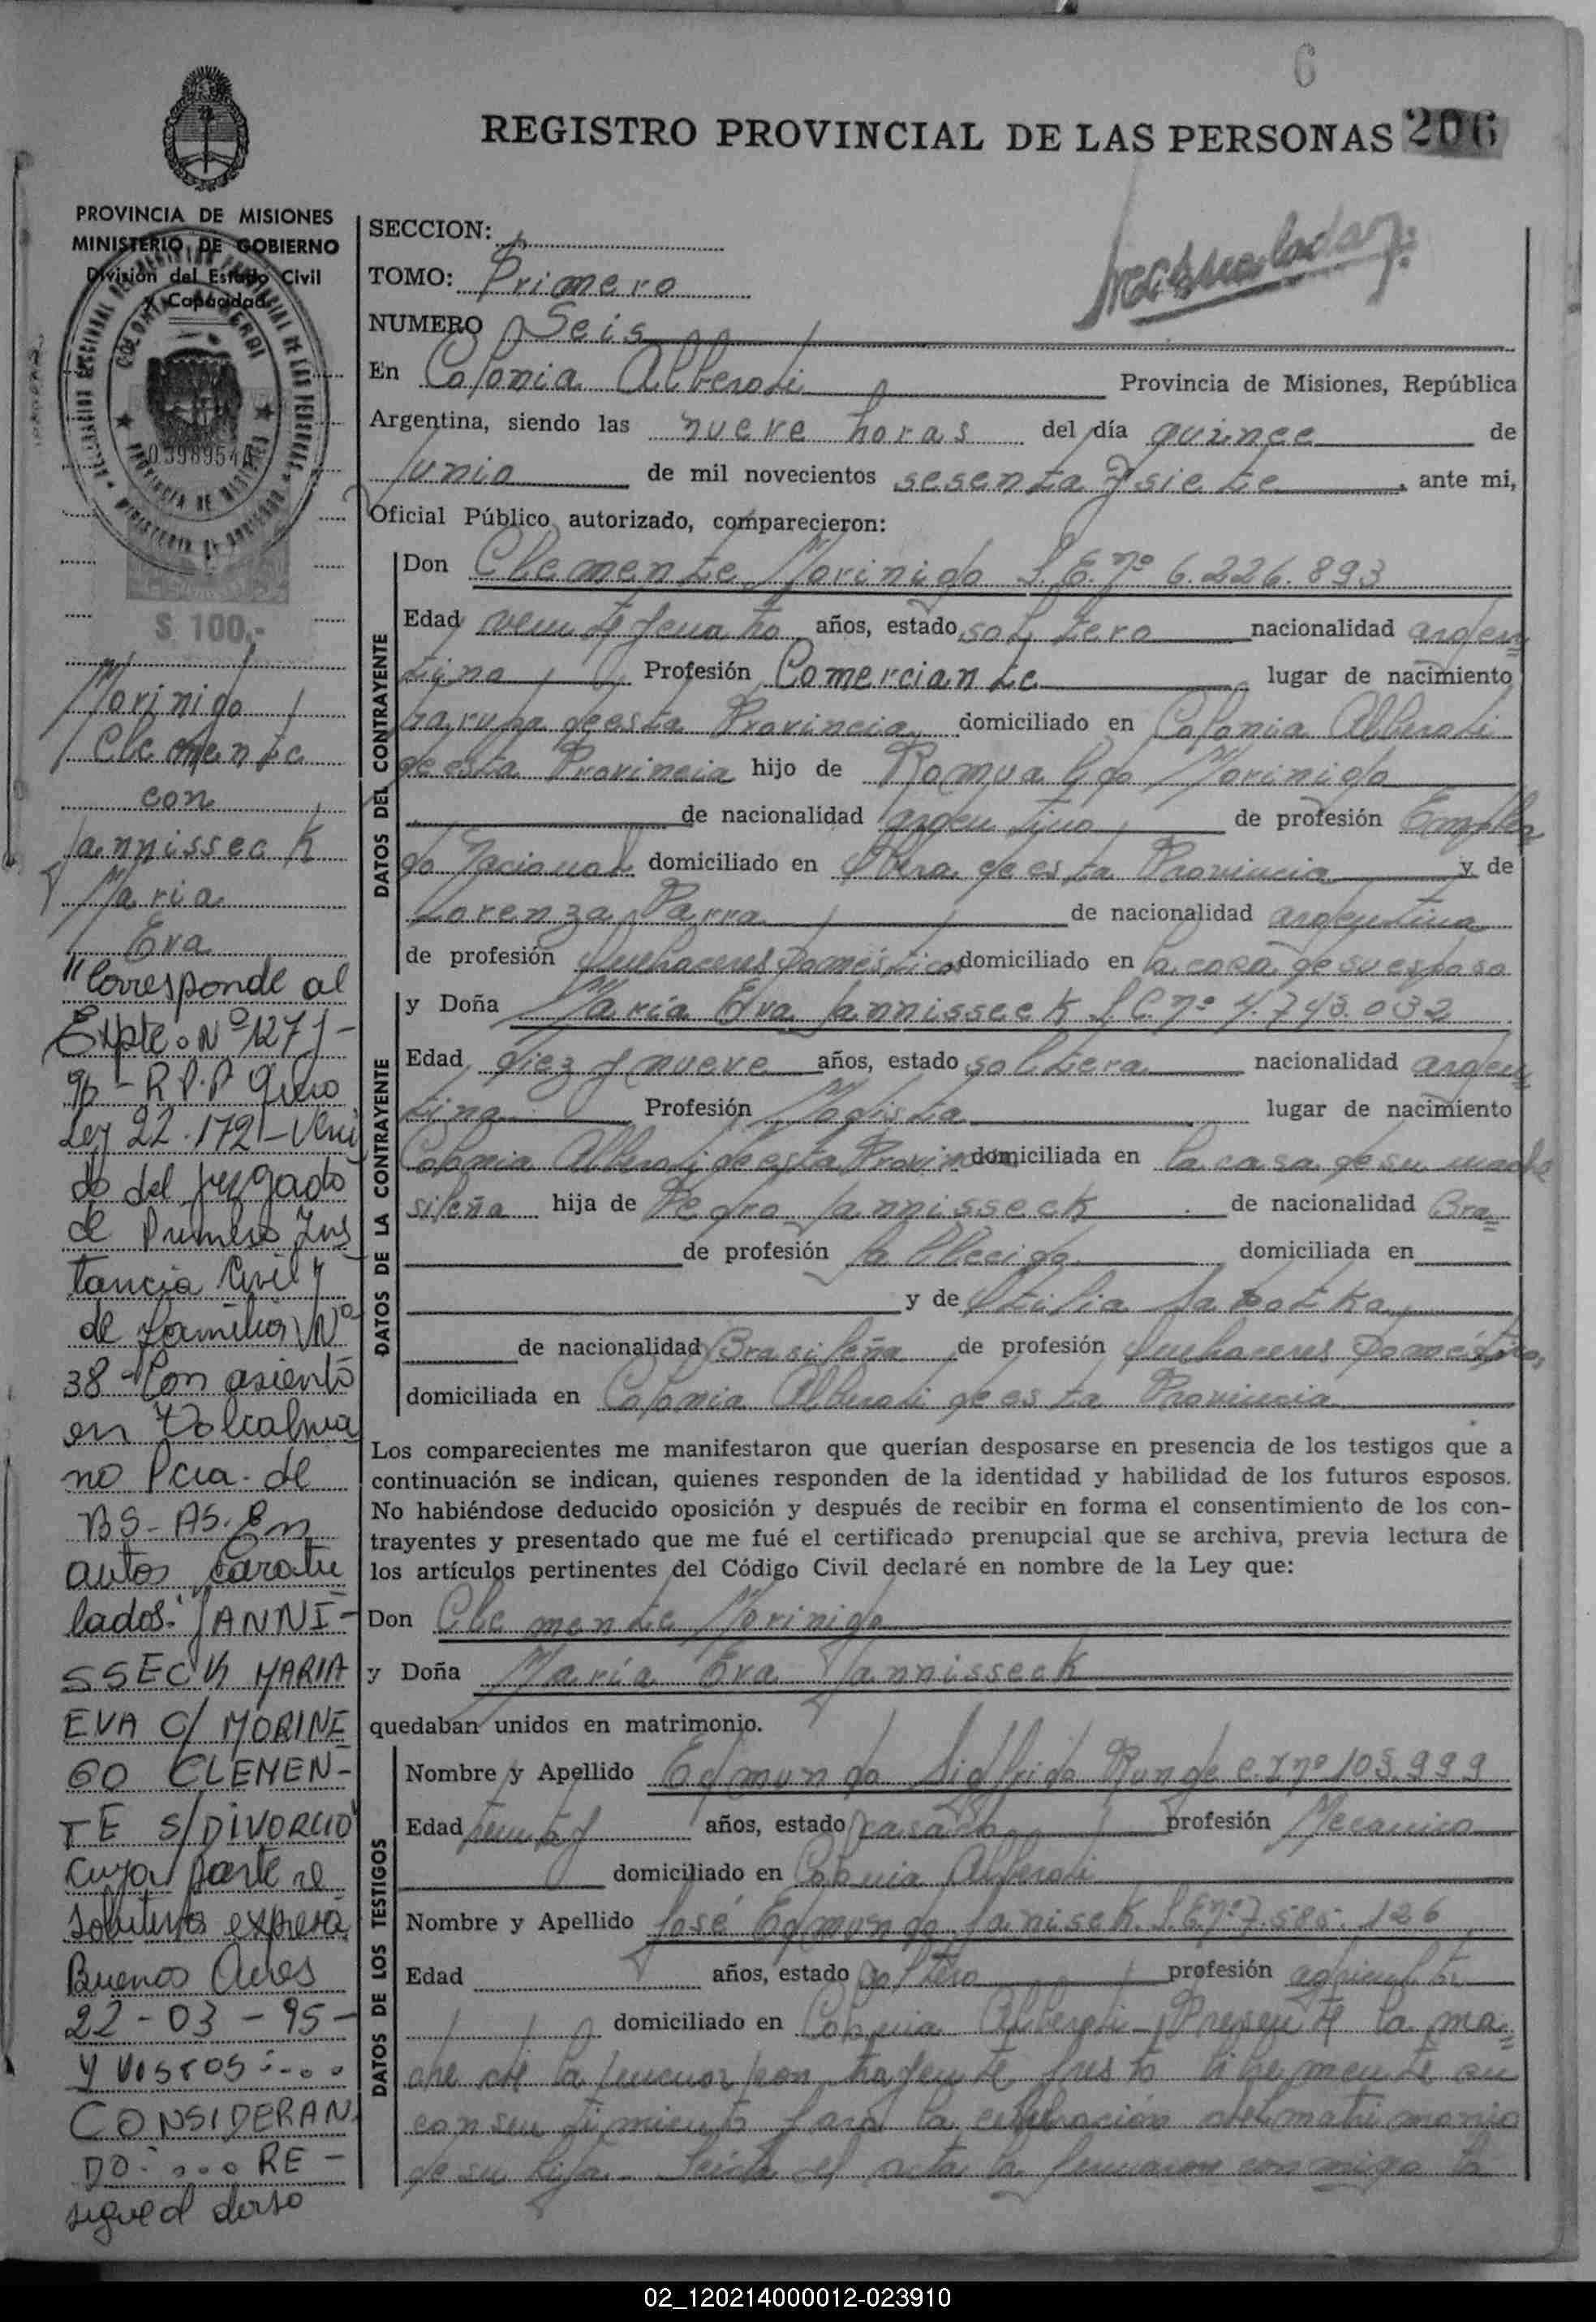 6
REGISTRO PROVINCIAL DE LAS PERSONAS 206
PROVINCIA DE MISIONES
MINISTERIO DE GOBIERNO
División del Estado Civil
y Capacidad
0398954
$ 100,-
Morinigo
Clemente
con
Jannisseck
Maria
Eva
"Corresponde al
Expte. Nº 1271-
95 - R.P.P.
Ley 22.172 - Veni
do del Juzgado
de Primera Ins
tancia Civil y
de Familia Nº
38 - Con asiento
en
no Pcia. de
BS-AS. En
autos Caratu
lados: "JANNI-
SSECK MARIA
EVA C/ MORINE
GO CLEMEN-
TE S/DIVORCIO"
cuya parte re
solutiva expresa
Buenos Aires
22-03-95-
Y VISTOS:....
CONSIDERAN
DO:.... RE-
sigue al dorso
SECCION:
TOMO: Primero
NUMERO Seis
En Colonia Alberdi Provincia de Misiones, República
Argentina, siendo las nueve horas del día quince de
Junio de mil novecientos sesenta y siete, ante mi,
Oficial Público autorizado, comparecieron:
DATOS DEL CONTRAYENTE
Don Clemente Morinigo L.E. nº 6.226.893
Edad años, estado soltero nacionalidad argen
tino Profesión Comerciante lugar de nacimiento
de esta Provincia domiciliado en Colonia Alberdi
de esta Provincia hijo de Romualdo Morinigo
de nacionalidad argentino de profesión Emplea
do Nacional domiciliado en Obera de esta Provincia y de
Lorenza Parra de nacionalidad argentina
de profesión Quehaceres Domésticos domiciliado en la casa de su esposo
DATOS DE LA CONTRAYENTE
y Doña María Eva Jannisseck L.C. nº 4.743.032
Edad diez y nueve años, estado soltera nacionalidad argen
tina Profesión Modista lugar de nacimiento
Colonia Alberdi de esta Provincia domiciliada en la casa de su madre
sileña hija de Pedro Jannisseck de nacionalidad Bra
de profesión fallecido domiciliada en
y de Otilia
de nacionalidad Brasileña de profesión Quehaceres Domésticos,
domiciliada en Colonia Alberdi de esta Provincia
Los comparecientes me manifestaron que querían desposarse en presencia de los testigos que a
continuación se indican, quienes responden de la identidad y habilidad de los futuros esposos.
No habiéndose deducido oposición y después de recibir en forma el consentimiento de los con-
trayentes y presentado que me fué el certificado prenupcial que se archiva, previa lectura de
los artículos pertinentes del Código Civil declaré en nombre de la Ley que:
Don Clemente Morinigo
y Doña María Eva Jannisseck
quedaban unidos en matrimonio.
DATOS DE LOS TESTIGOS
Nombre y Apellido Edmundo Sigfrido Runge C.I. nº 103.999
Edad años, estado casado profesión Mecanico
domiciliado en Colonia Alberdi
Nombre y Apellido José Edmundo Janisek L.E. nº 7.585.126
Edad años, estado soltero profesión
domiciliado en Colonia Alberdi - Presente la ma
dre de la menor contrayente presto libremente su
consentimiento para la celebración del matrimonio
de su hija. Leida el acta la firmaron conmigo la
02_120214000012-023910